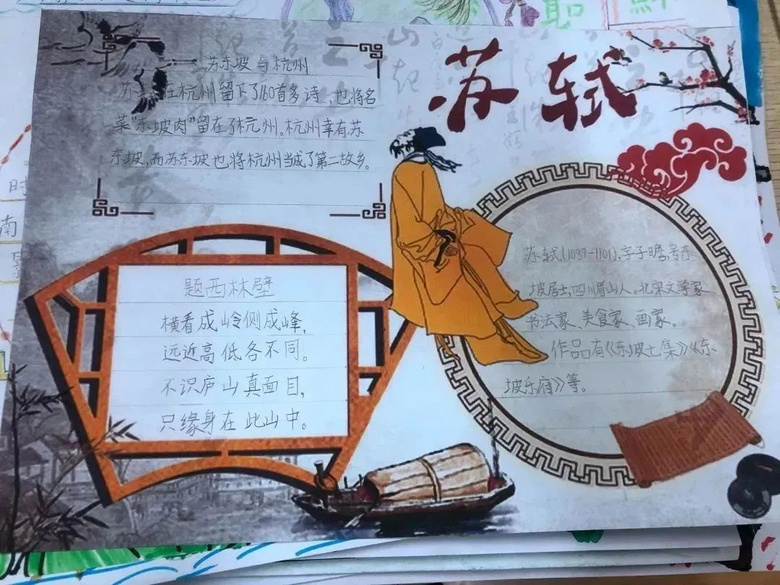 苏轼
苏东坡与杭州
在杭州留下了160首多诗，也将名
菜"东坡肉"留在了杭州。杭州幸有苏
东坡，而苏东坡也将杭州当成了第二故乡。
题西林壁
横看成岭侧成峰，
远近高低各不同。
不识庐山真面目，
只缘身在此山中。
苏轼(1037-1101)，字子瞻，号东
坡居士，四川眉山人，北宋文学家
书法家、美食家、画家。
作品有《东坡七集》《东
坡乐府》等。